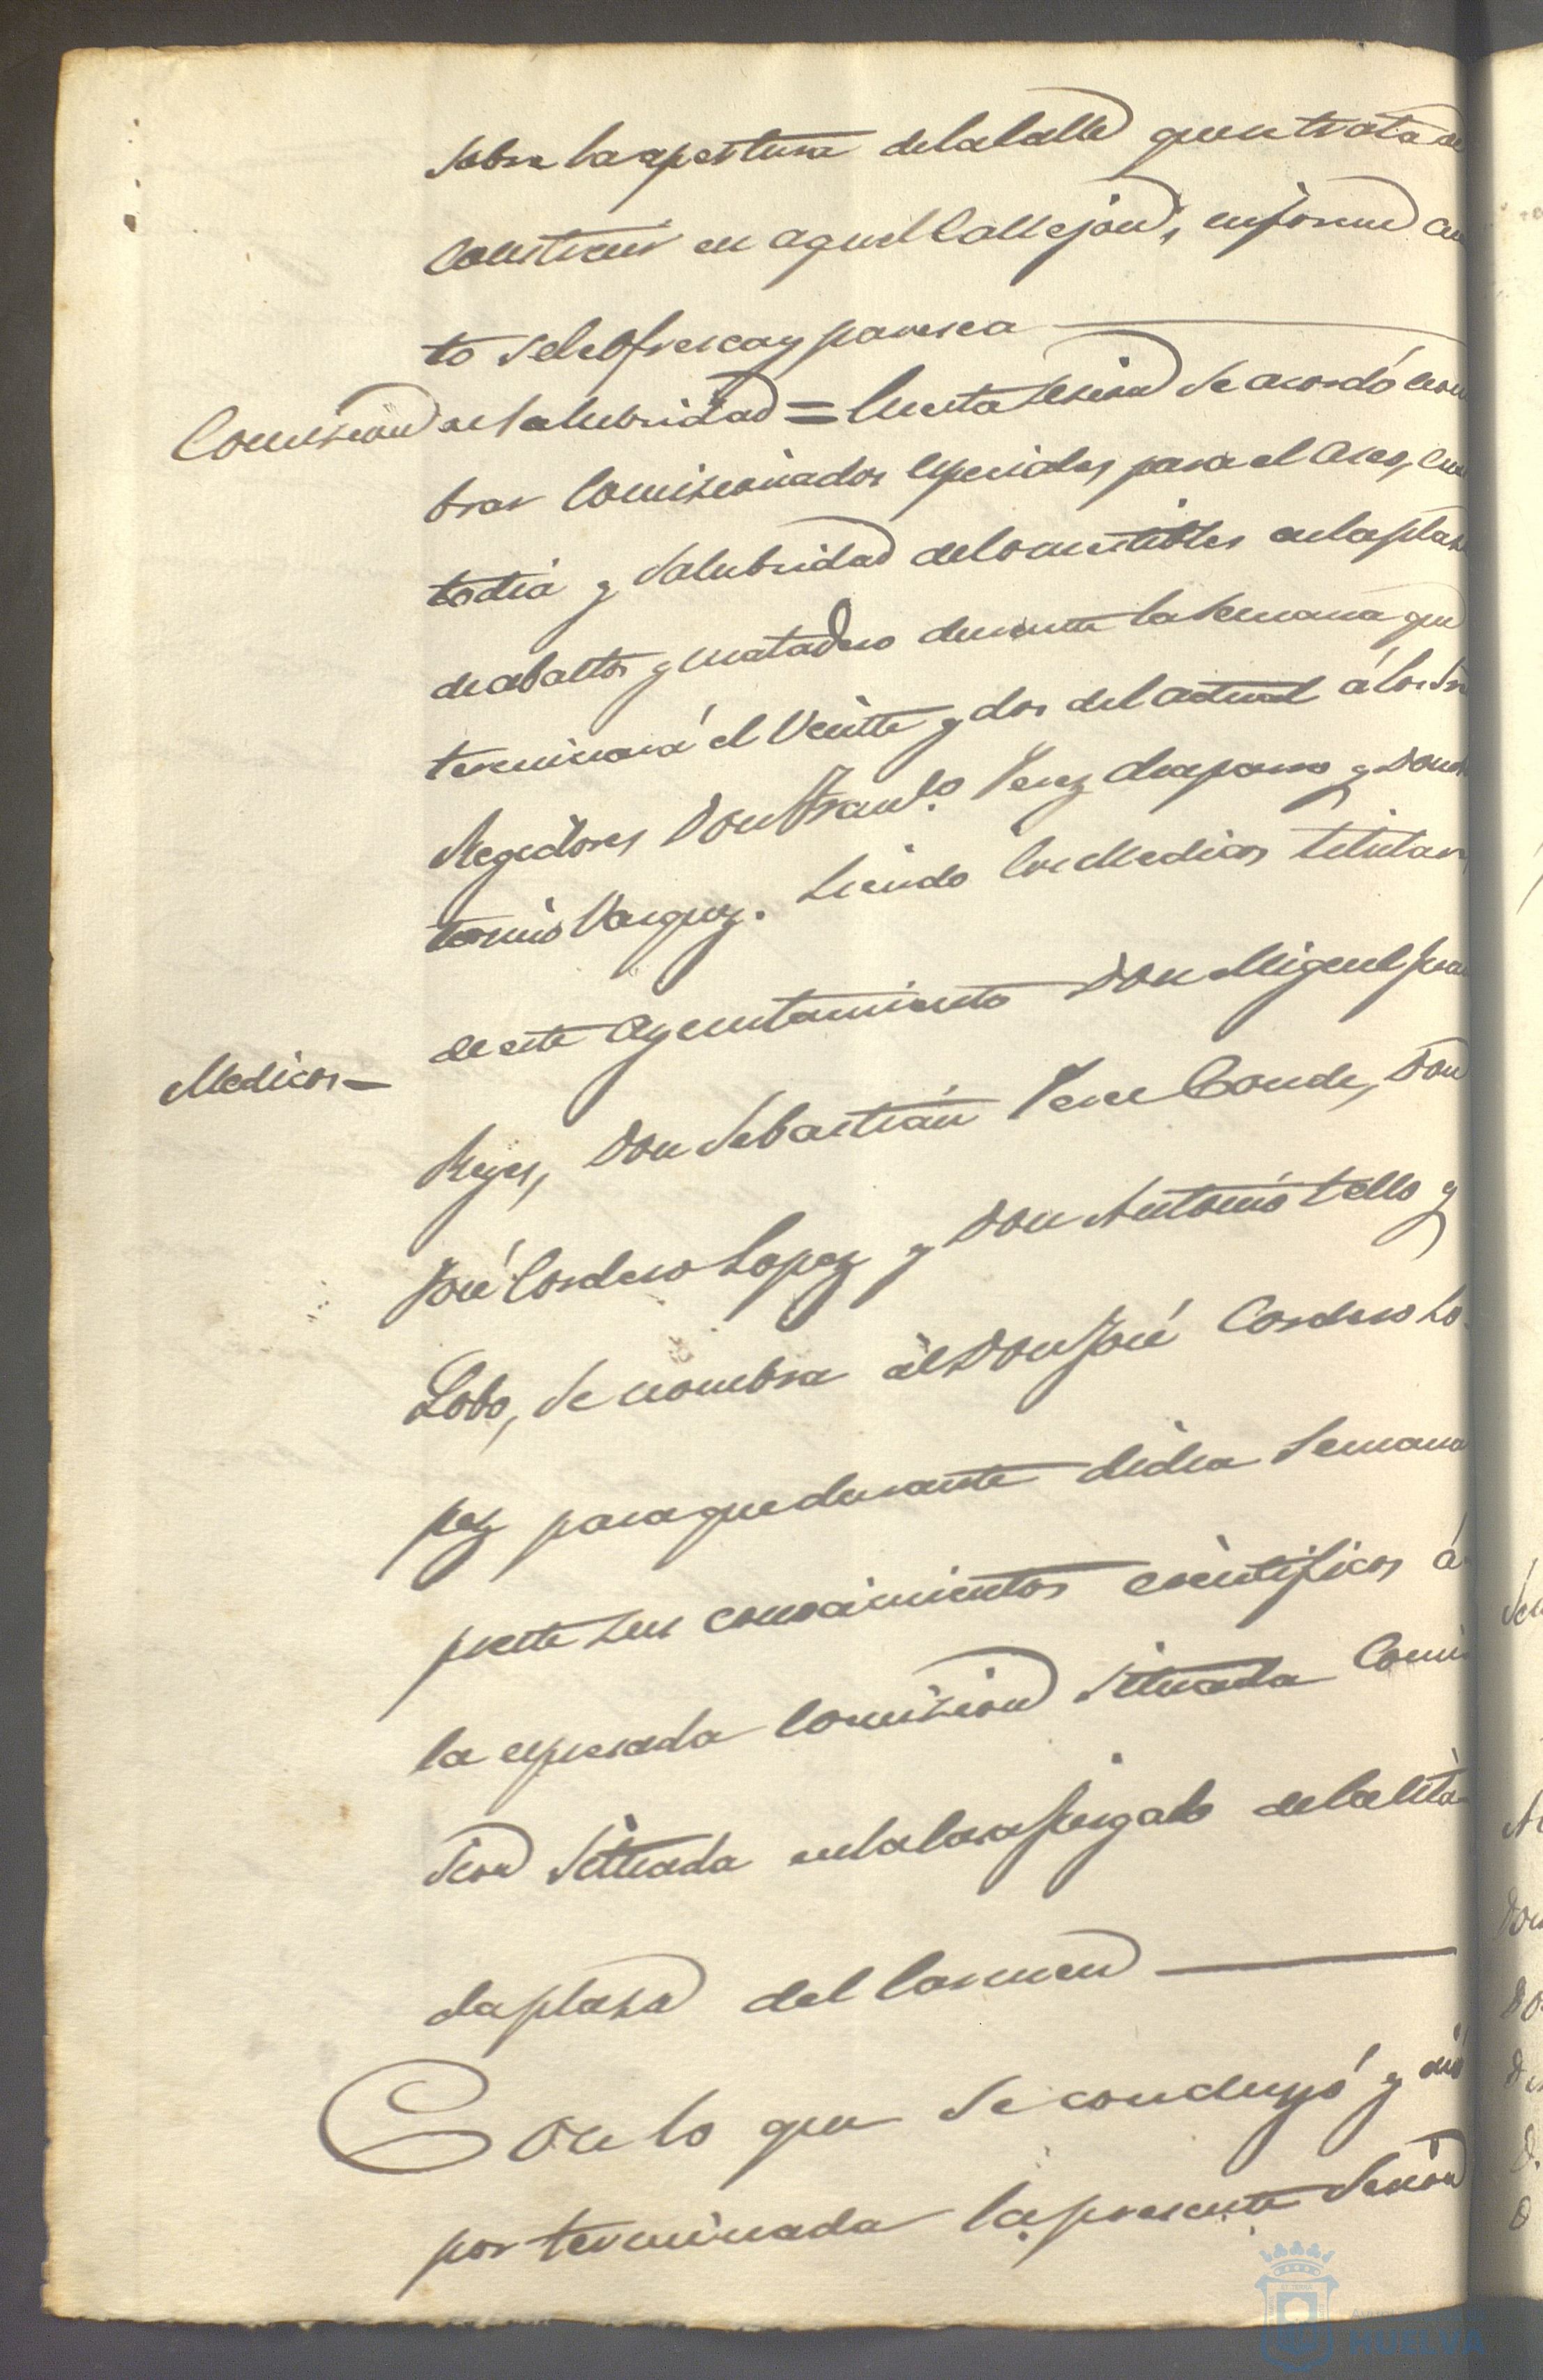 sobre la apertura de la calle que se trata de
construir en aquel Callejon, informe cuan
to se le ofresca y paresca
Comision de salubridad = En esta sesion se acordó nom
brar Comisionados especiales para el aseo, cus
todia y salubridad de comestibles en la plaza
de abastos y matadero durante la semana que
terminará el veinte y dos del actual á los Sres
Regidores Don Franco. Perez y Don An
tonio Vazquez. Siendo los Medicos titulares
de este Ayuntamiento Don Miguel Juan
Medicos—
Reyes, Don Sebastián Perez Conde, Don
José Cordero Lopez y Don Antonio Tello y
Lobo, se nombra al Don José Cordero Lo-
pez para que durante dicha semana
preste sus conocimientos cientificos á
la espresada Comision situada Comi
sion situada en la casa Juzgado de la cita
da plaza del Carmen
Con lo que se concluyó y dió
por terminada la presente sesion
HUELVA